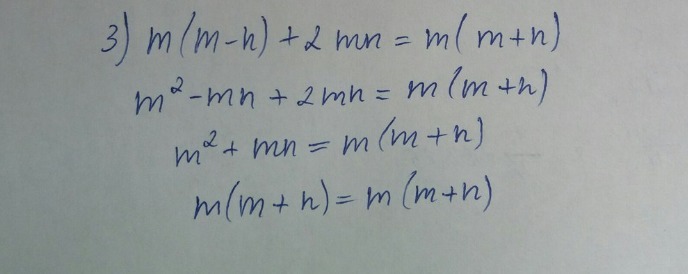 3) m(m-n) + 2mn = m(m+n)
m² - mn + 2mn = m(m+n)
m² + mn = m(m+n)
m(m+n) = m(m+n)